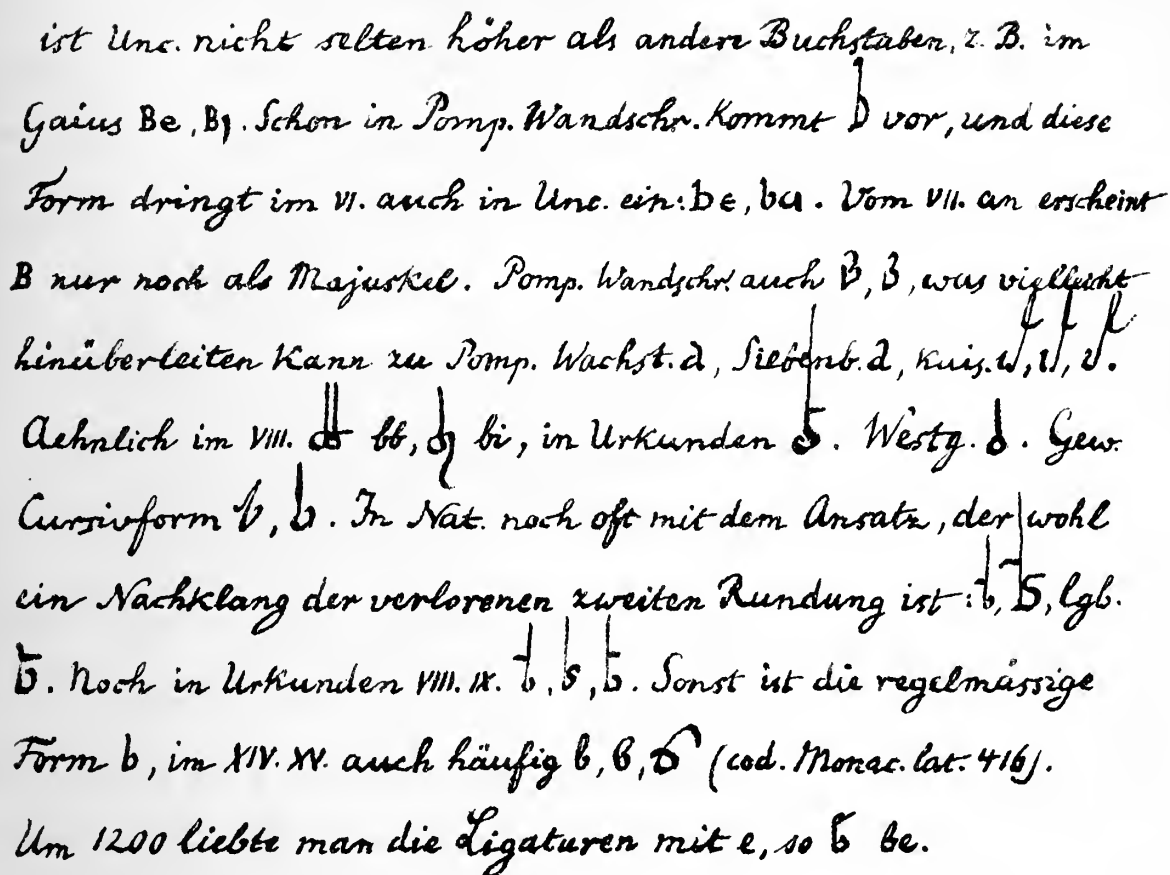 ist Unc. nicht selten höher als andere Buchstaben, z. B. im
Gaius Be, B. Schon in Pomp. Wandschr. kommt b vor, und diese
Form dringt im VI. auch in Unc. ein: be, ba. Vom VII. an erscheint
B nur noch als Majuskel. Pomp. Wandschr. auch B, B, was vielleicht
hinüberleiten kann zu Pomp. Wachst. d, Siebenb. d, kais.
Aehnlich im VIII. bb, bi, in Urkunden. Westg. Gew.
Cursivform b, b. In Nat. noch oft mit dem Ansatz, der wohl
ein Nachklang der verlorenen zweiten Rundung ist: b, b, lgb.
b. Noch in Urkunden VIII. IX. b, b, b. Sonst ist die regelmässige
Form b, im XIV. XV. auch häufig b, b, b (cod. Monac. lat. 416).
Um 1200 liebte man die Ligaturen mit e, so be.